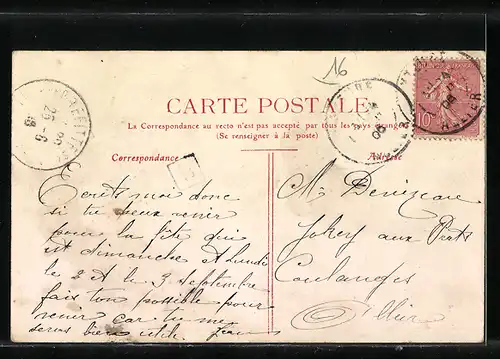 16
CARTE POSTALE
La Correspondance au recto n'est pas acceptée par tous les pays étrangers
(Se renseigner à la poste)
Correspondance
Adresse
Ecrits moi donc
si tu veux venir
pour la fête qui
est dimanche et Lundi
le 2 et le 3 Septembre
fais ton possible pour
venir car tu me
seras bien utile. Jean
M. Denizeau
Jokey aux Ports
Coulanges
Allier
10